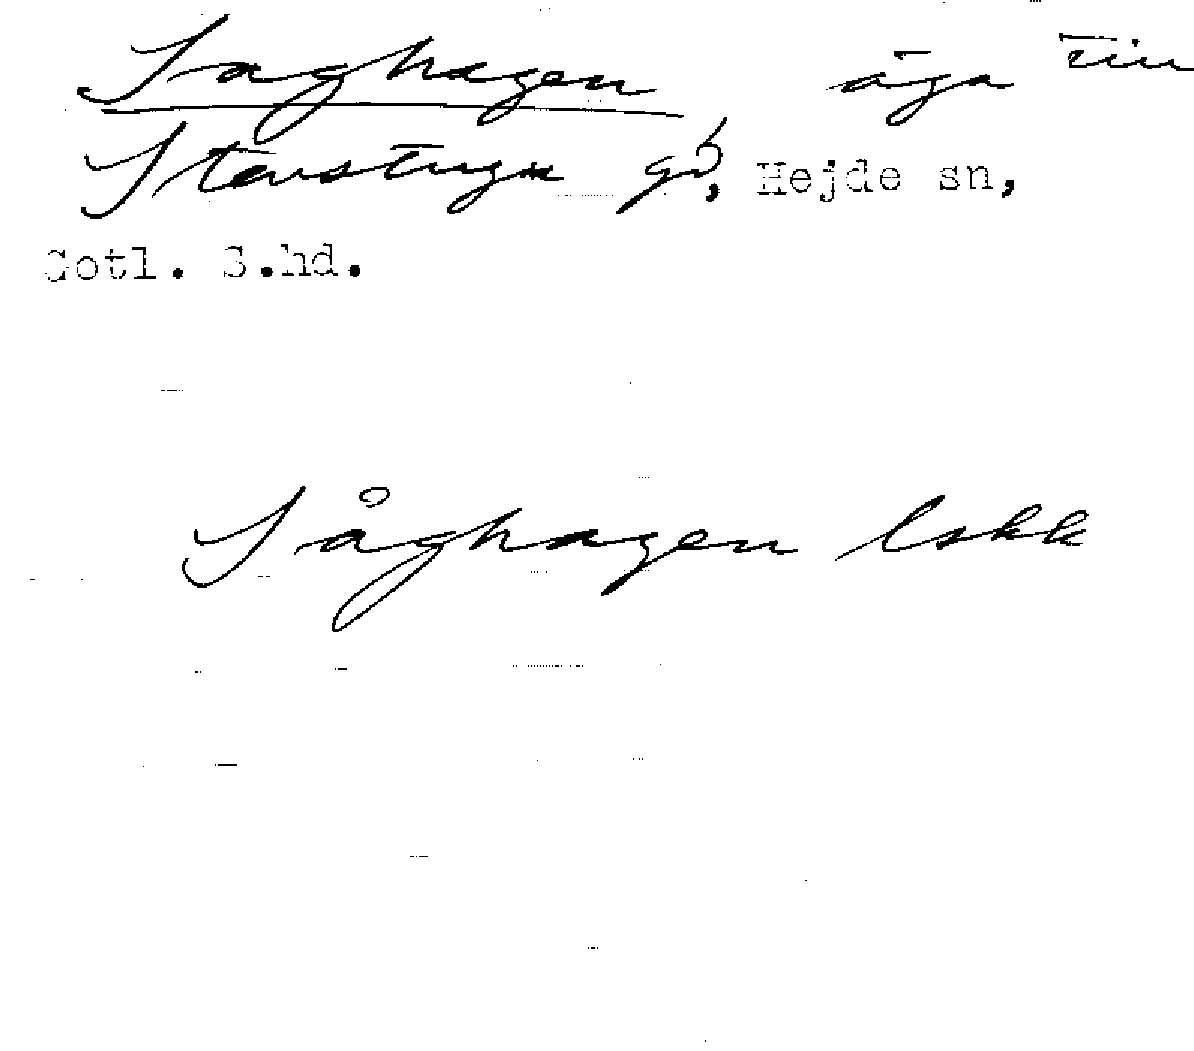 Saghagen äga till
Stenstugu gd, Hejde sn,
Gotl. S.hd.
Såghagen lskk